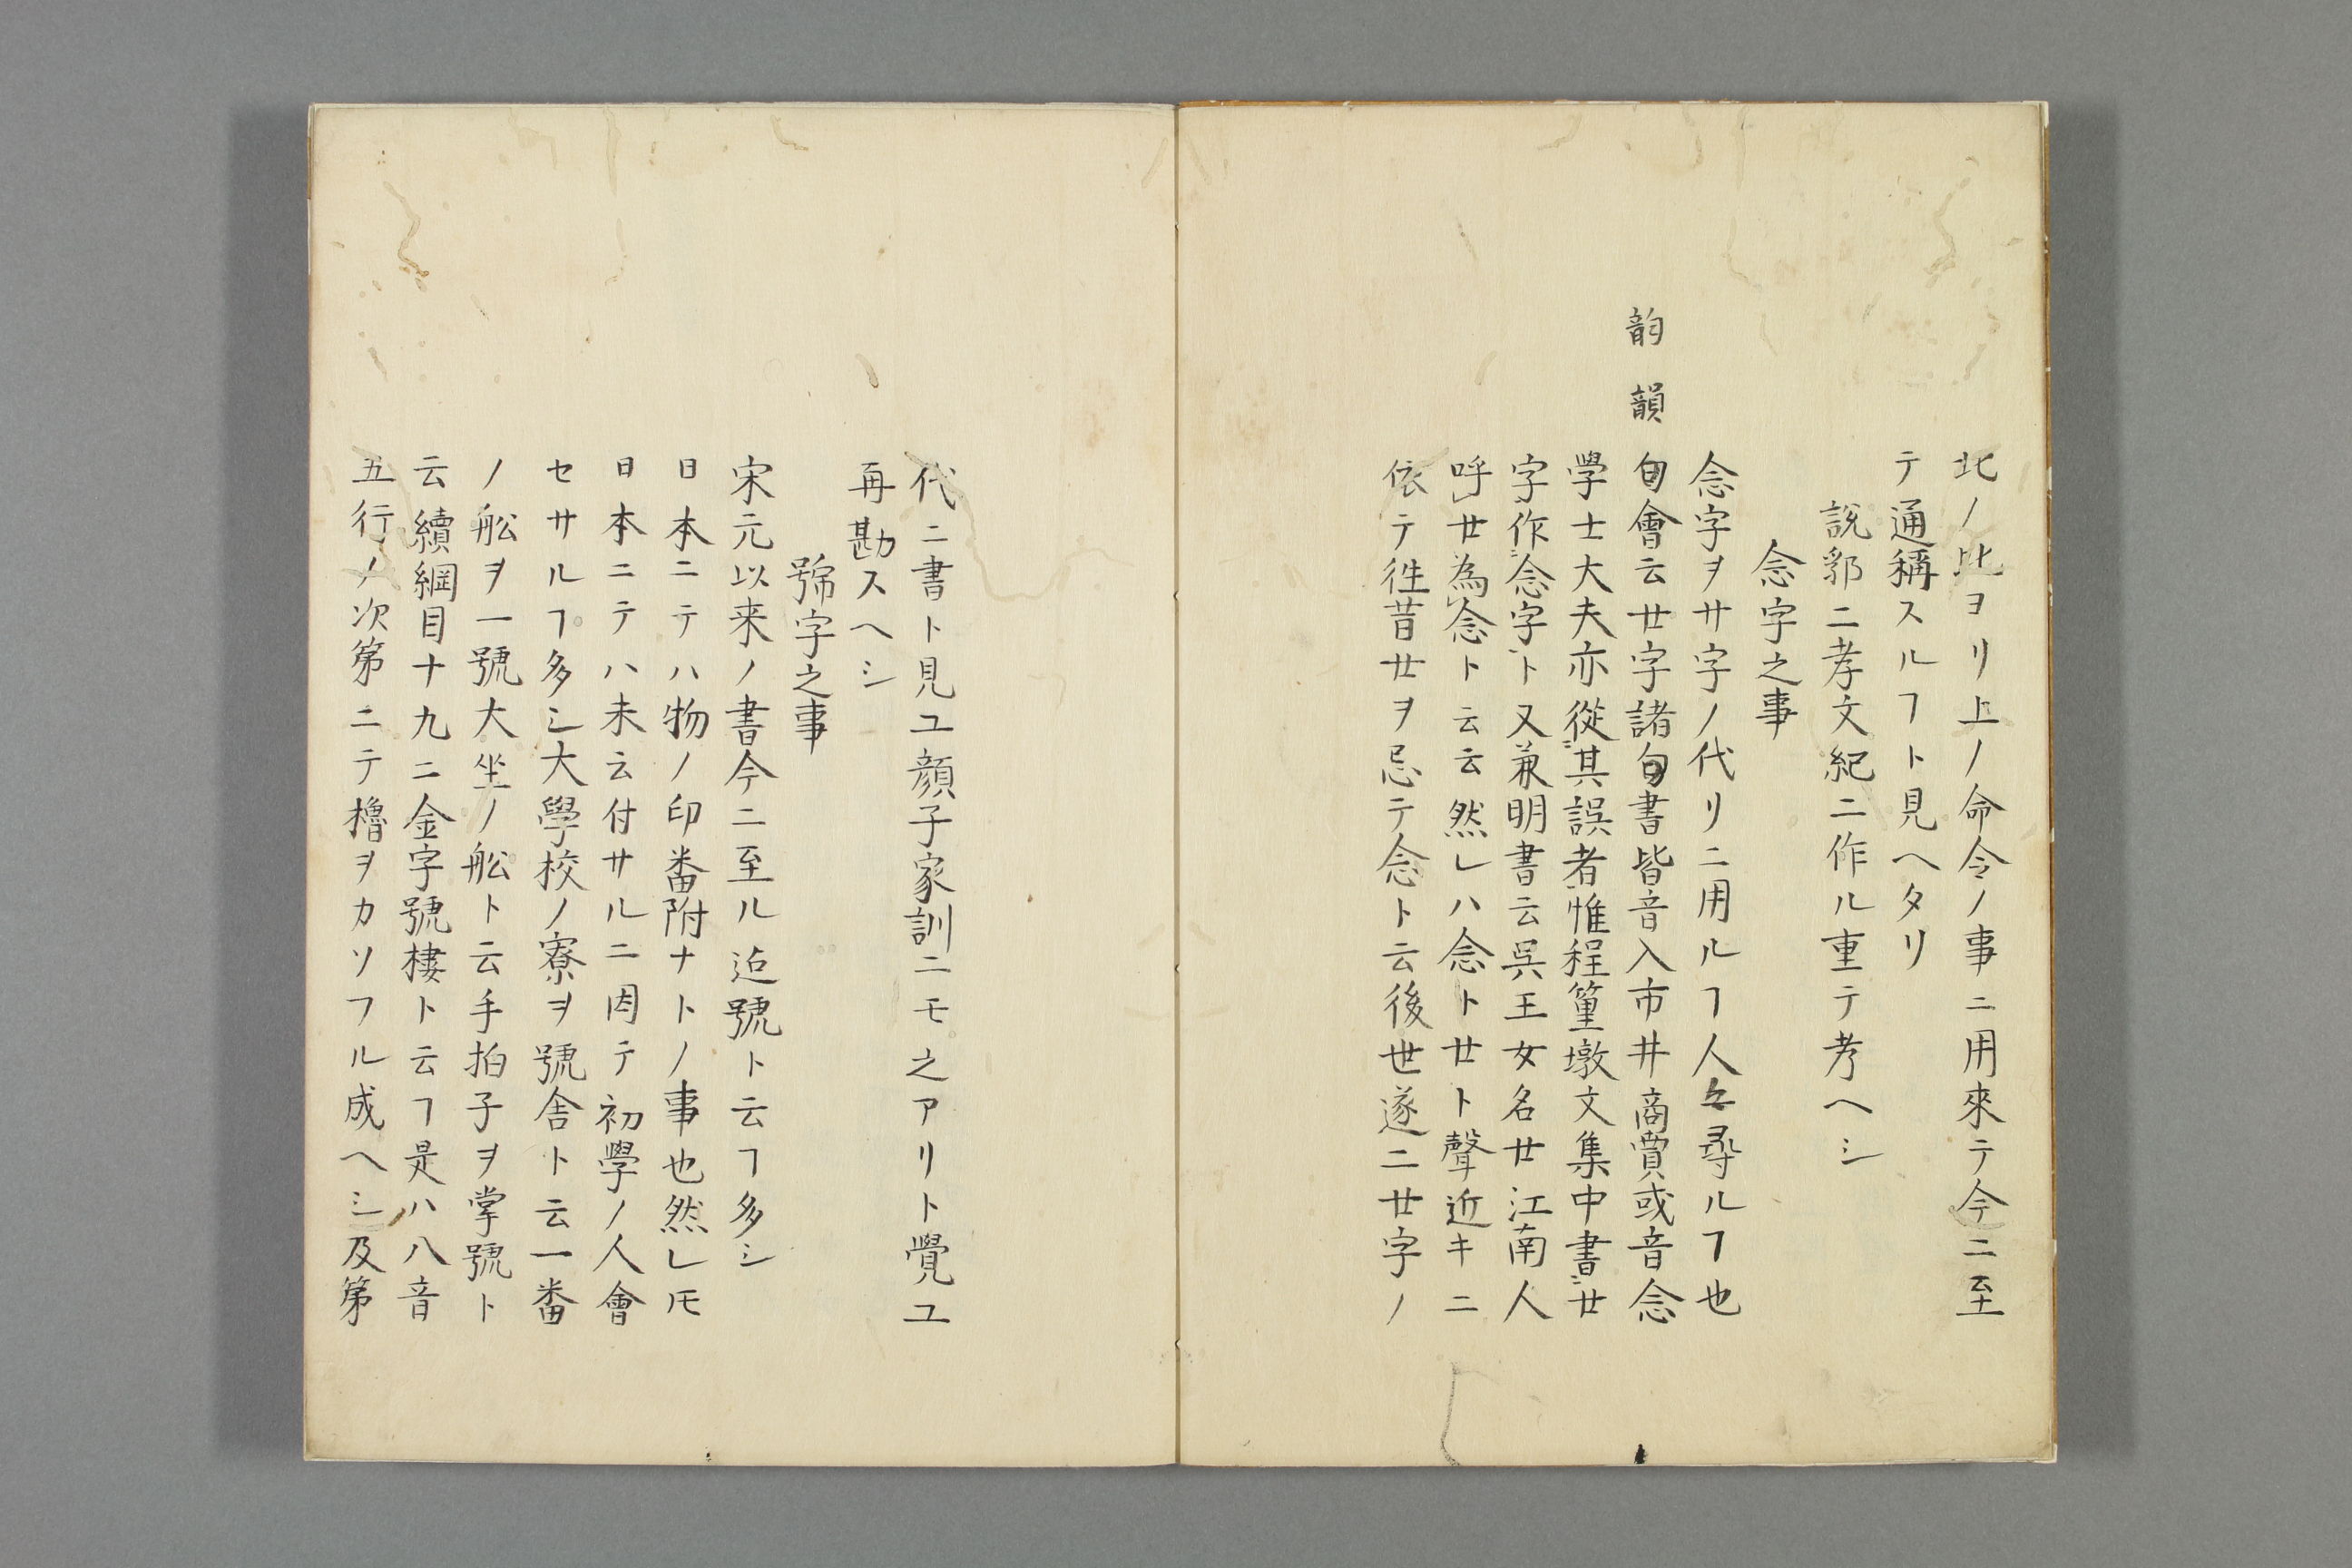 北ノ比ヨリ上ノ命令ノ事ニ用來テ今ニ至
テ通稱スルヿト見ヘタリ
説郛ニ孝文紀ニ作ル重テ考ヘシ
念字之事
念字ヲ廿字ノ代リニ用ルヿ人々尋ルヿ也
韵 韻
匀會云廿字諸匀書皆音入市井商賈或音念
學士大夫亦從其誤者惟程篁墩文集中書廿
字作念字ト又兼明書云呉王女名廿江南人
呼廿為念ト云云然レハ念ト廿ト聲近キニ
依テ徃昔廿ヲ忌テ念ト云後世遂ニ廿字ノ
代ニ書ト見ユ顔子家訓ニモ之アリト覺ユ
再勘スヘシ
號字之事
宋元以来ノ書今ニ至ル迠號ト云ヿ多シ
日本ニテハ物ノ印番附ナトノ事也然レ𪜈
日本ニテハ未云付サルニ因テ初學ノ人會
セサルヿ多シ大學校ノ寮ヲ號舎ト云一番
ノ舩ヲ一號大坐ノ舩ト云手拍子ヲ掌號ト
云續綱目十九ニ金字號樓ト云ヿ是ハ八音
五行ノ次第ニテ櫓ヲカソフル成ヘシ及第